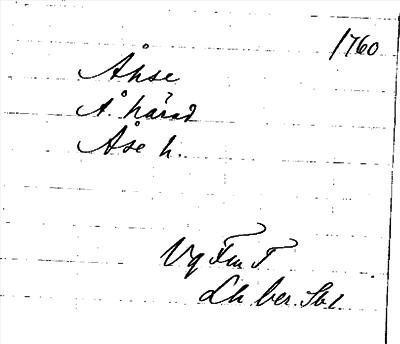 1760
Åhse
Å. härad
Åse h.
Vg Fm T
Lh. ber. Sbl